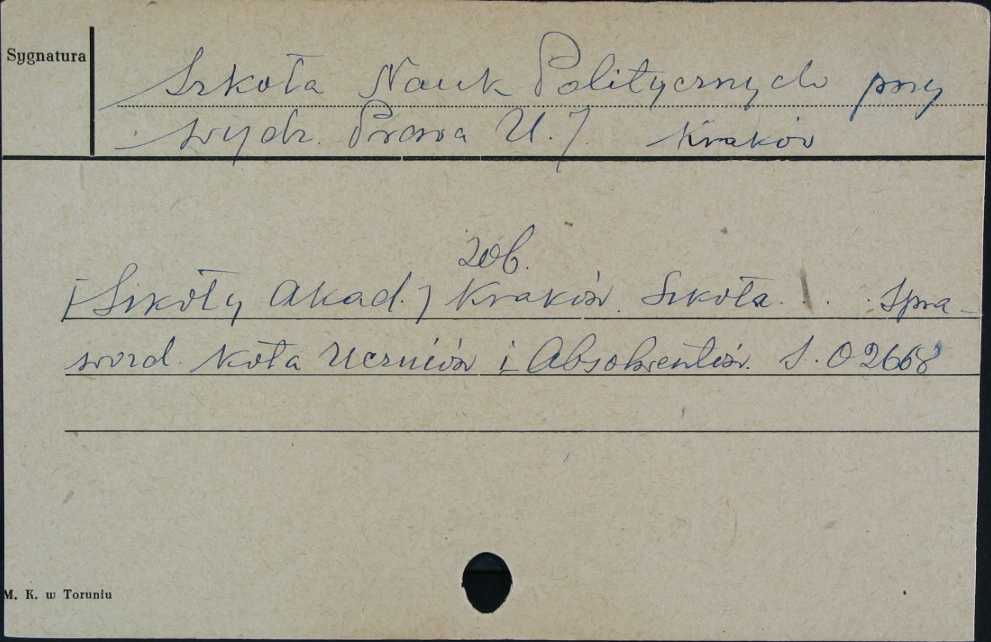 Sygnatura
Szkoła Nauk Politycznych przy
wydz. Prawa U. J. Kraków
zob.
[Szkoły Akad.] Kraków. Szkoła . . . Spra-
wozd. Koła Uczniów i Absolwentów. S. O 2668
M. K. w Toruniu